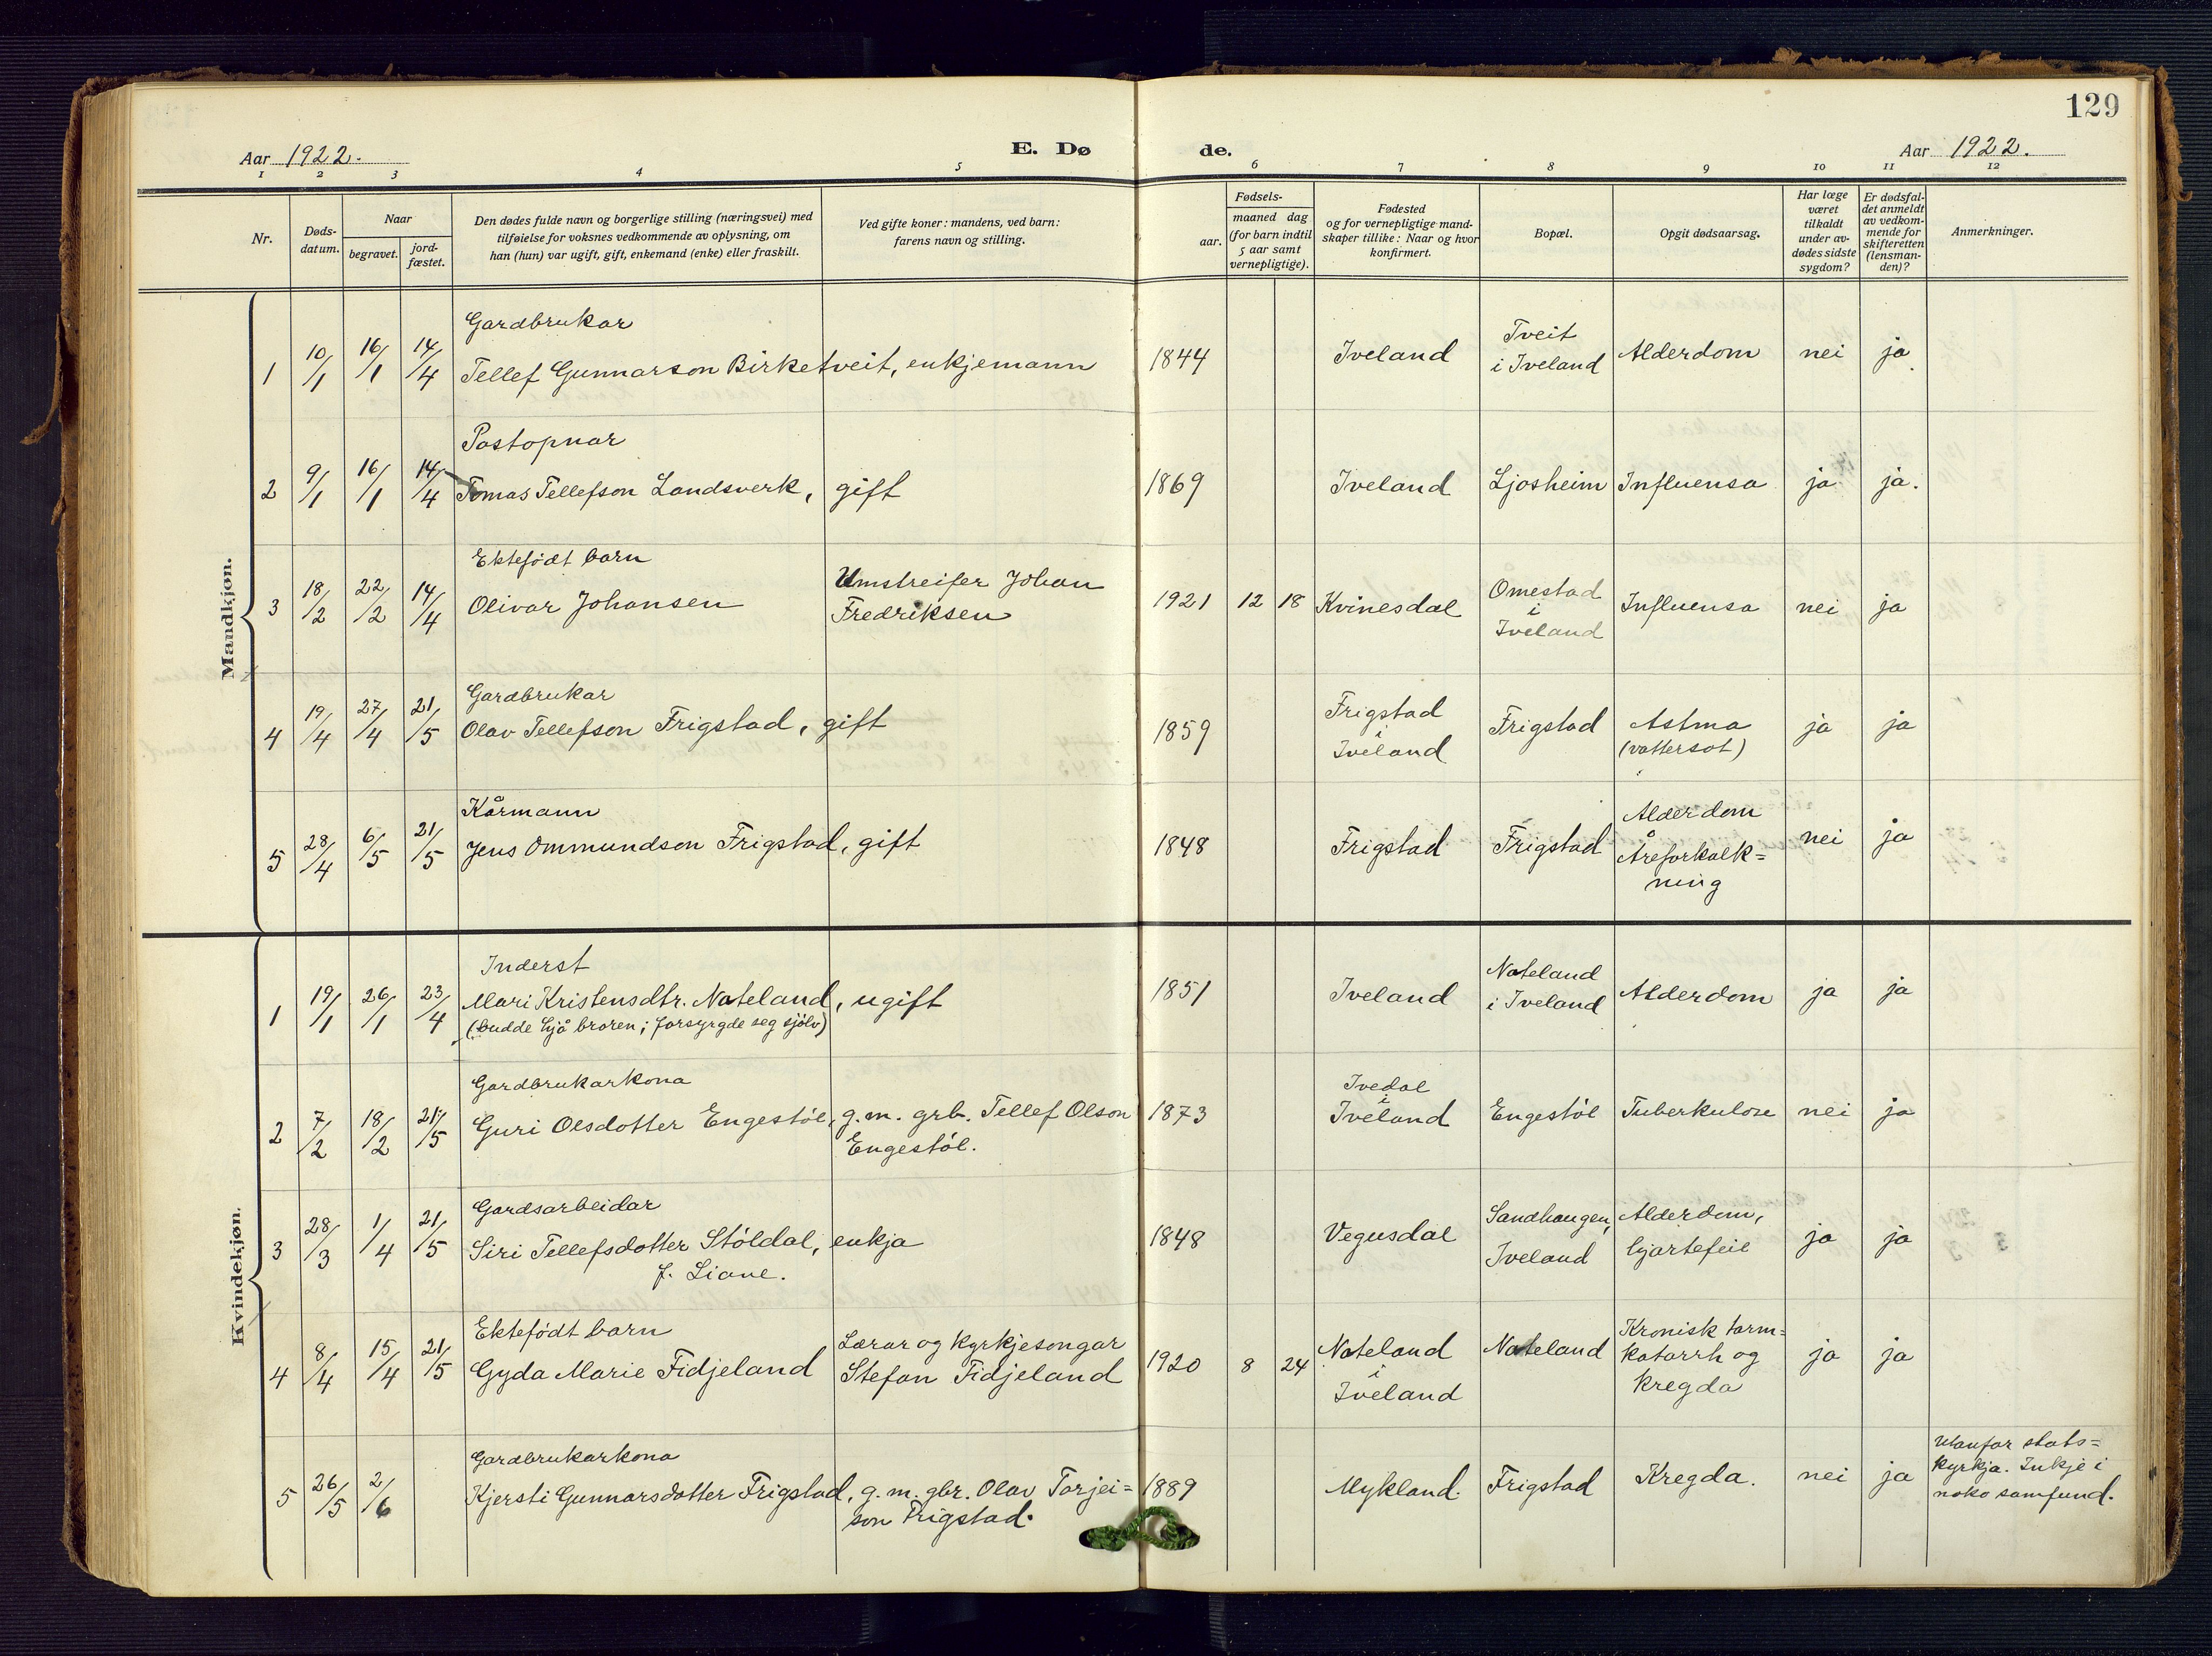 129
Aar 1922. E. Dø de. Aar 1922.
1 2 3 4 5 6 7 8 9 10 11 12
Nr.
Døds-
datum.
Naar
begravet.
jord-
fæstet.
Den dødes fulde navn og borgerlige stilling (næringsvei) med
tilføielse for voksnes vedkommende av oplysning, om
han (hun) var ugift, gift, enkemand (enke) eller fraskilt.
Ved gifte koner: mandens, ved barn:
farens navn og stilling.
Fødsels-
aar.
maaned dag
(for barn indtil
5 aar samt
vernepligtige).
Fødested
og for vernepligtige mand-
skaper tillike: Naar og hvor
konfirmert.
Bopæl.
Opgit dødsaarsag.
Har læge
været
tilkaldt
under av-
dødes sidste
sygdom?
Er dødsfal-
det anmeldt
av vedkom-
mende for
skifteretten
(lensman-
den)?
Anmerkninger.
Mandkjøn.
Gardbrukar
1 10/1 16/1 14/4 Tellef Gunnarson Birketveit, enkjemann 1844 Iveland Tveit
i Iveland Alderdom nei ja.
Postopnar
2 9/1 16/1 14/4 Tomas Tellefson Landsverk, gift 1869 Iveland Ljosheim Influensa ja ja.
Ektefødt barn
3 18/2 22/2 14/4 Olivar Johansen Umstreifer Johan
Fredriksen 1921 12 18 Kvinesdal Omestad
i
Iveland Influensa nei ja
Gardbrukar
4 19/4 27/4 21/5 Olav Tellefson Frigstad, gift 1859 Frigstad
i
Iveland Frigstad Astma
(vattersot) ja ja
Kårmann
5 28/4 6/5 21/5 Jens Ommundson Frigstad, gift 1848 Frigstad Frigstad Alderdom
Åreforkalk=
ning nei ja
Kvindekjøn.
Inderst
1 19/1 26/1 23/4 Mari Kristensdtr. Nateland, ugift 1851 Iveland Nateland
i Iveland Alderdom ja ja
(budde hjå broren; forsyrgde seg sjølv)
Gardbrukarkona
2 7/2 18/2 21/5 Guri Olsdotter Engestøl, g.m. grb. Tellef Olson
Engestøl. 1873 Ivedal
i
Iveland Engestøl Tuberkulose nei ja
Gardsarbeidar
3 28/3 1/4 21/5 Siri Tellefsdotter Støldal, enkja
f. Liane. 1848 Vegusdal Sandhaugen,
Iveland Alderdom,
hjartefeil ja ja
Ektefødt barn
4 8/4 15/4 21/5 Gyda Marie Fidjeland Lærar og kyrkjesongar
Stefan Fidjeland 1920 8 24 Nateland
i
Iveland Nateland Kronisk tarm=
katarrh og
kregda ja ja
Gardbrukarkona
5 26/5 2/6 Kjersti Gunnarsdotter Frigstad, g.m. gbr. Olav Tarjei=
son Frigstad. 1889 Mykland. Frigstad Kregda. nei ja Utanfor stats=
kyrkja. Inkje i
noko samfund.